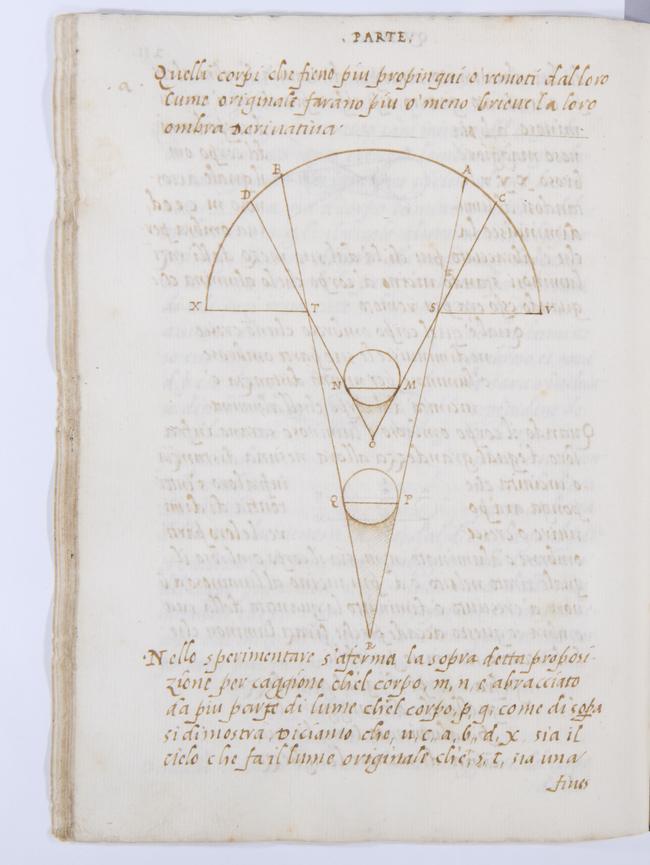 . PARTE.
Quelli corpi che fieno piu propinqui o remoti dal loro
lume originale farano piu o' meno brieue la loro
ombra deriuatiua
B A
D C
E
X T S V
N M
O
Q P
R
Nello sperimentare s'aferma la sopra detta proposi-
zione per caggione ch'el corpo, m, n, e' abracciato
da piu parte di lume ch'el corpo, p, q, come di sopra
si dimostra Diciamo che, u, c, a, b, d, x, sia il
cielo che fa il lume originale ch'e, s, t, sia una
fines